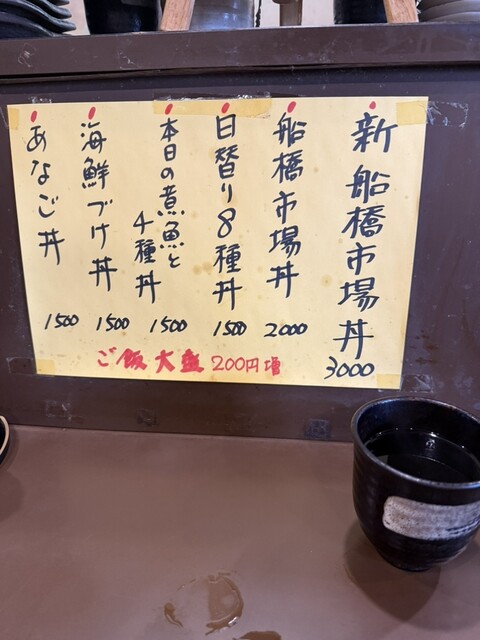 新船橋市場丼 3000
船橋市場丼 2000
日替り8種丼 1500
本日の煮魚と
4種丼 1500
海鮮づけ丼 1500
あなご丼 1500
ご飯大盛 200円増